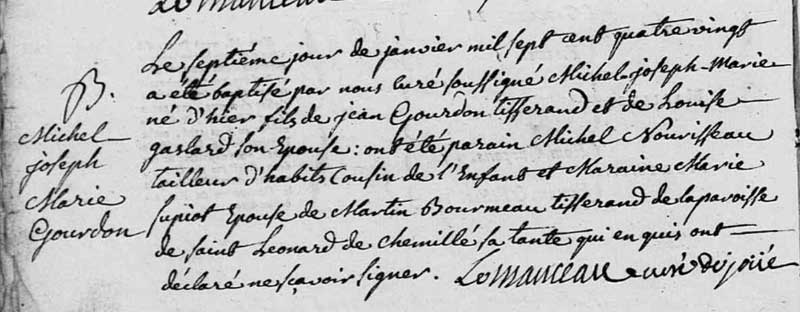 Lemanceau
Le septiéme jour de janvier mil sept cent quatre vingt
a été baptisé par nous curé soussigné Michel-joseph-Marie
né d'hier fils de jean Gourdon tisserand et de Louise
gaslard son Epouse : ont été parain Michel Nourisseau
tailleur d'habits Cousin de l'Enfant et Maraine Marie
supiot Epouse de Martin Bourmeau tisserand de la paroisse
de saint Leonard de chemillé sa tante qui enquis ont
déclaré ne sçavoir signer. Lemanceau curé de joüé
B.
Michel
joseph
Marie
Gourdon